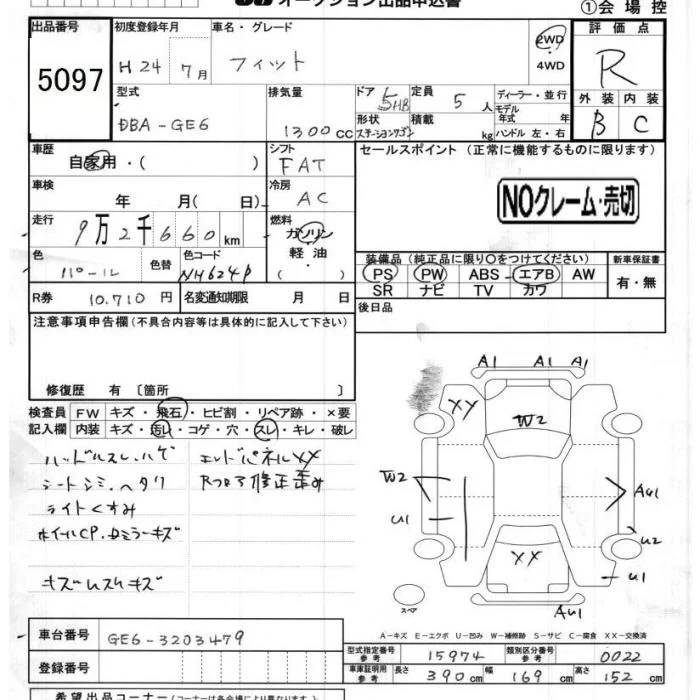 オークション出品申込書
①会場控
出品番号
5097
初度登録年月
H 24 7月
車名・グレード
フィット
2WD
4WD
評価点
R
外装 内装
B C
型式
DBA-GE6
排気量
1300 CC
ドア
5HB
定員
5 人
形状
ステーションワゴン
積載
kg
ディーラー・並行
モデル
年式 年
ハンドル 左・右
車歴
自家用・( )
シフト
FAT
セールスポイント (正常に機能するものに限ります)
NOクレーム・売切
車検
年 月( 日)
冷房
AC
走行
9万2千660km
燃料
ガソリン
軽・油
( )
色
パール
色替
色コード
NH624P
装備品 (純正品に限り○をつけてください)
PS PW ABS エアB AW
SR ナビ TV カワ
新車保証書
有・無
R券 10.710 円
名変通知期限 月 日
後日品
注意事項申告欄(不具合内容等は具体的に記入して下さい)
修復歴 有 〔箇所 〕
検査員
記入欄
FW キズ・飛石・ヒビ割・リペア跡・×要
内装 キズ・汚レ・コゲ・穴・スレ・キレ・破レ
ハンドルスレ、ハゲ
シートシミ、ヘタリ
ライトくすみ
ホイルCP、ドミラーキズ
キズ
エンドパネルXX
修正歪み
A1 A1 A1
XX
W2
W2
U1
AU1
U2
U1
XX
AU1
スペア
A-キズ E-エクボ U-凹み W-補修跡 S-サビ C-腐食 XX-交換済
車台番号
GE6-3203479
登録番号
型式指定番号
参考
15974
類別区分番号
参考
0022
車庫証明用
参考
長さ 390cm 幅 169cm 高さ 152cm
希望出品コーナー(コーナーは各会場により異なります)